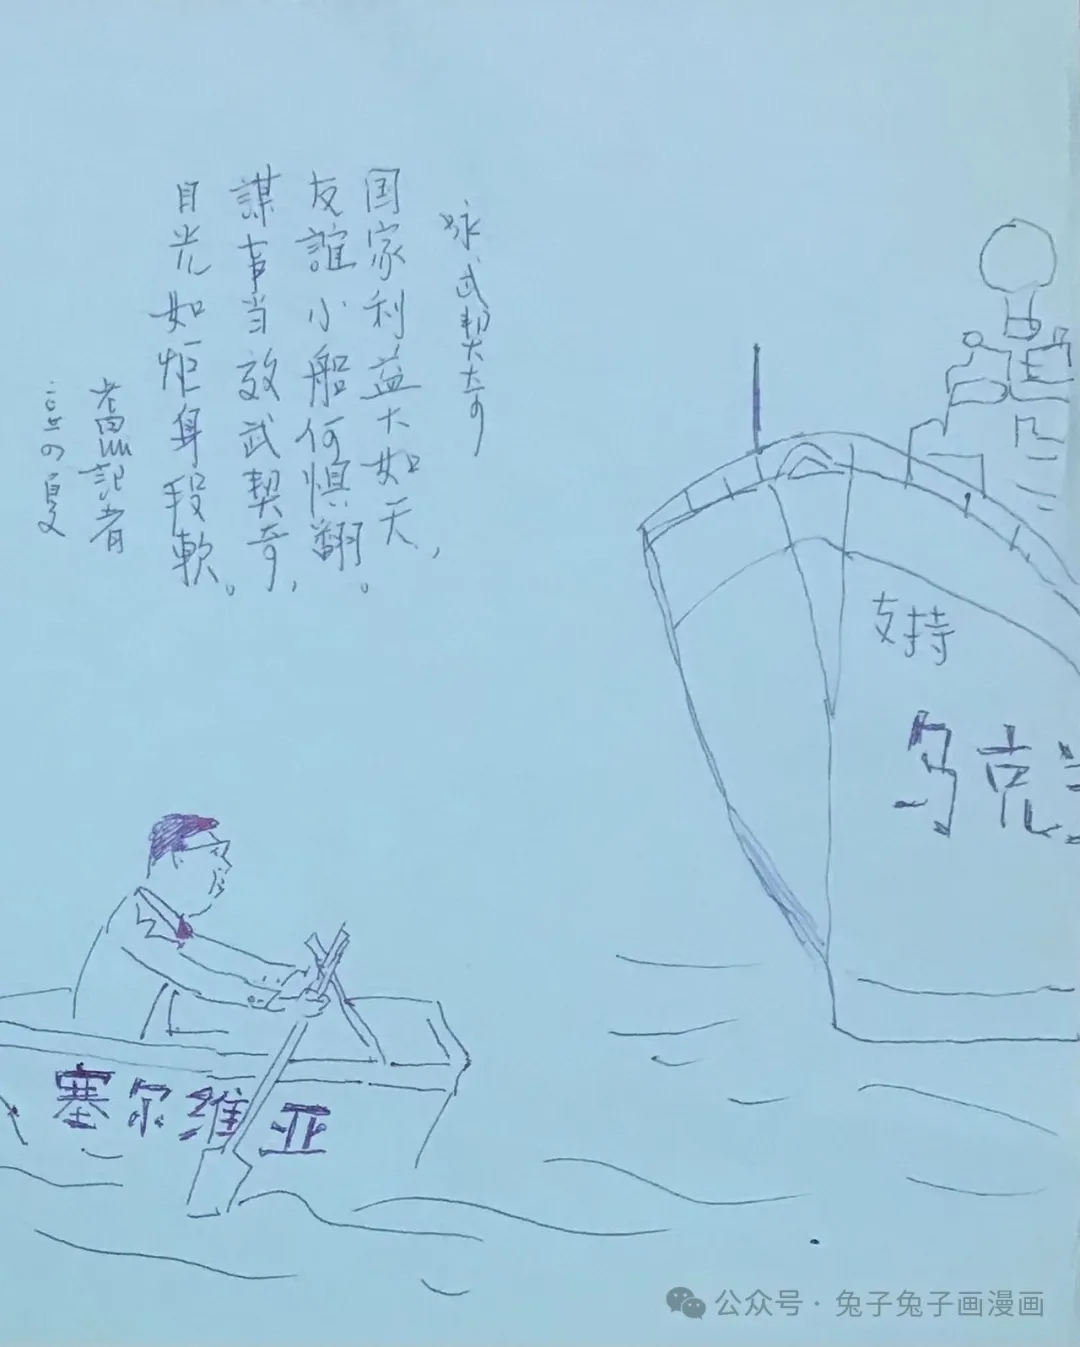 咏武契奇
国家利益大如天，
友誼小船何惧翻。
謀事当效武契奇，
目光如炬身段軟。
記者
二〇二四夏
支持
乌克
塞尔维亚
公众号·兔子兔子画漫画